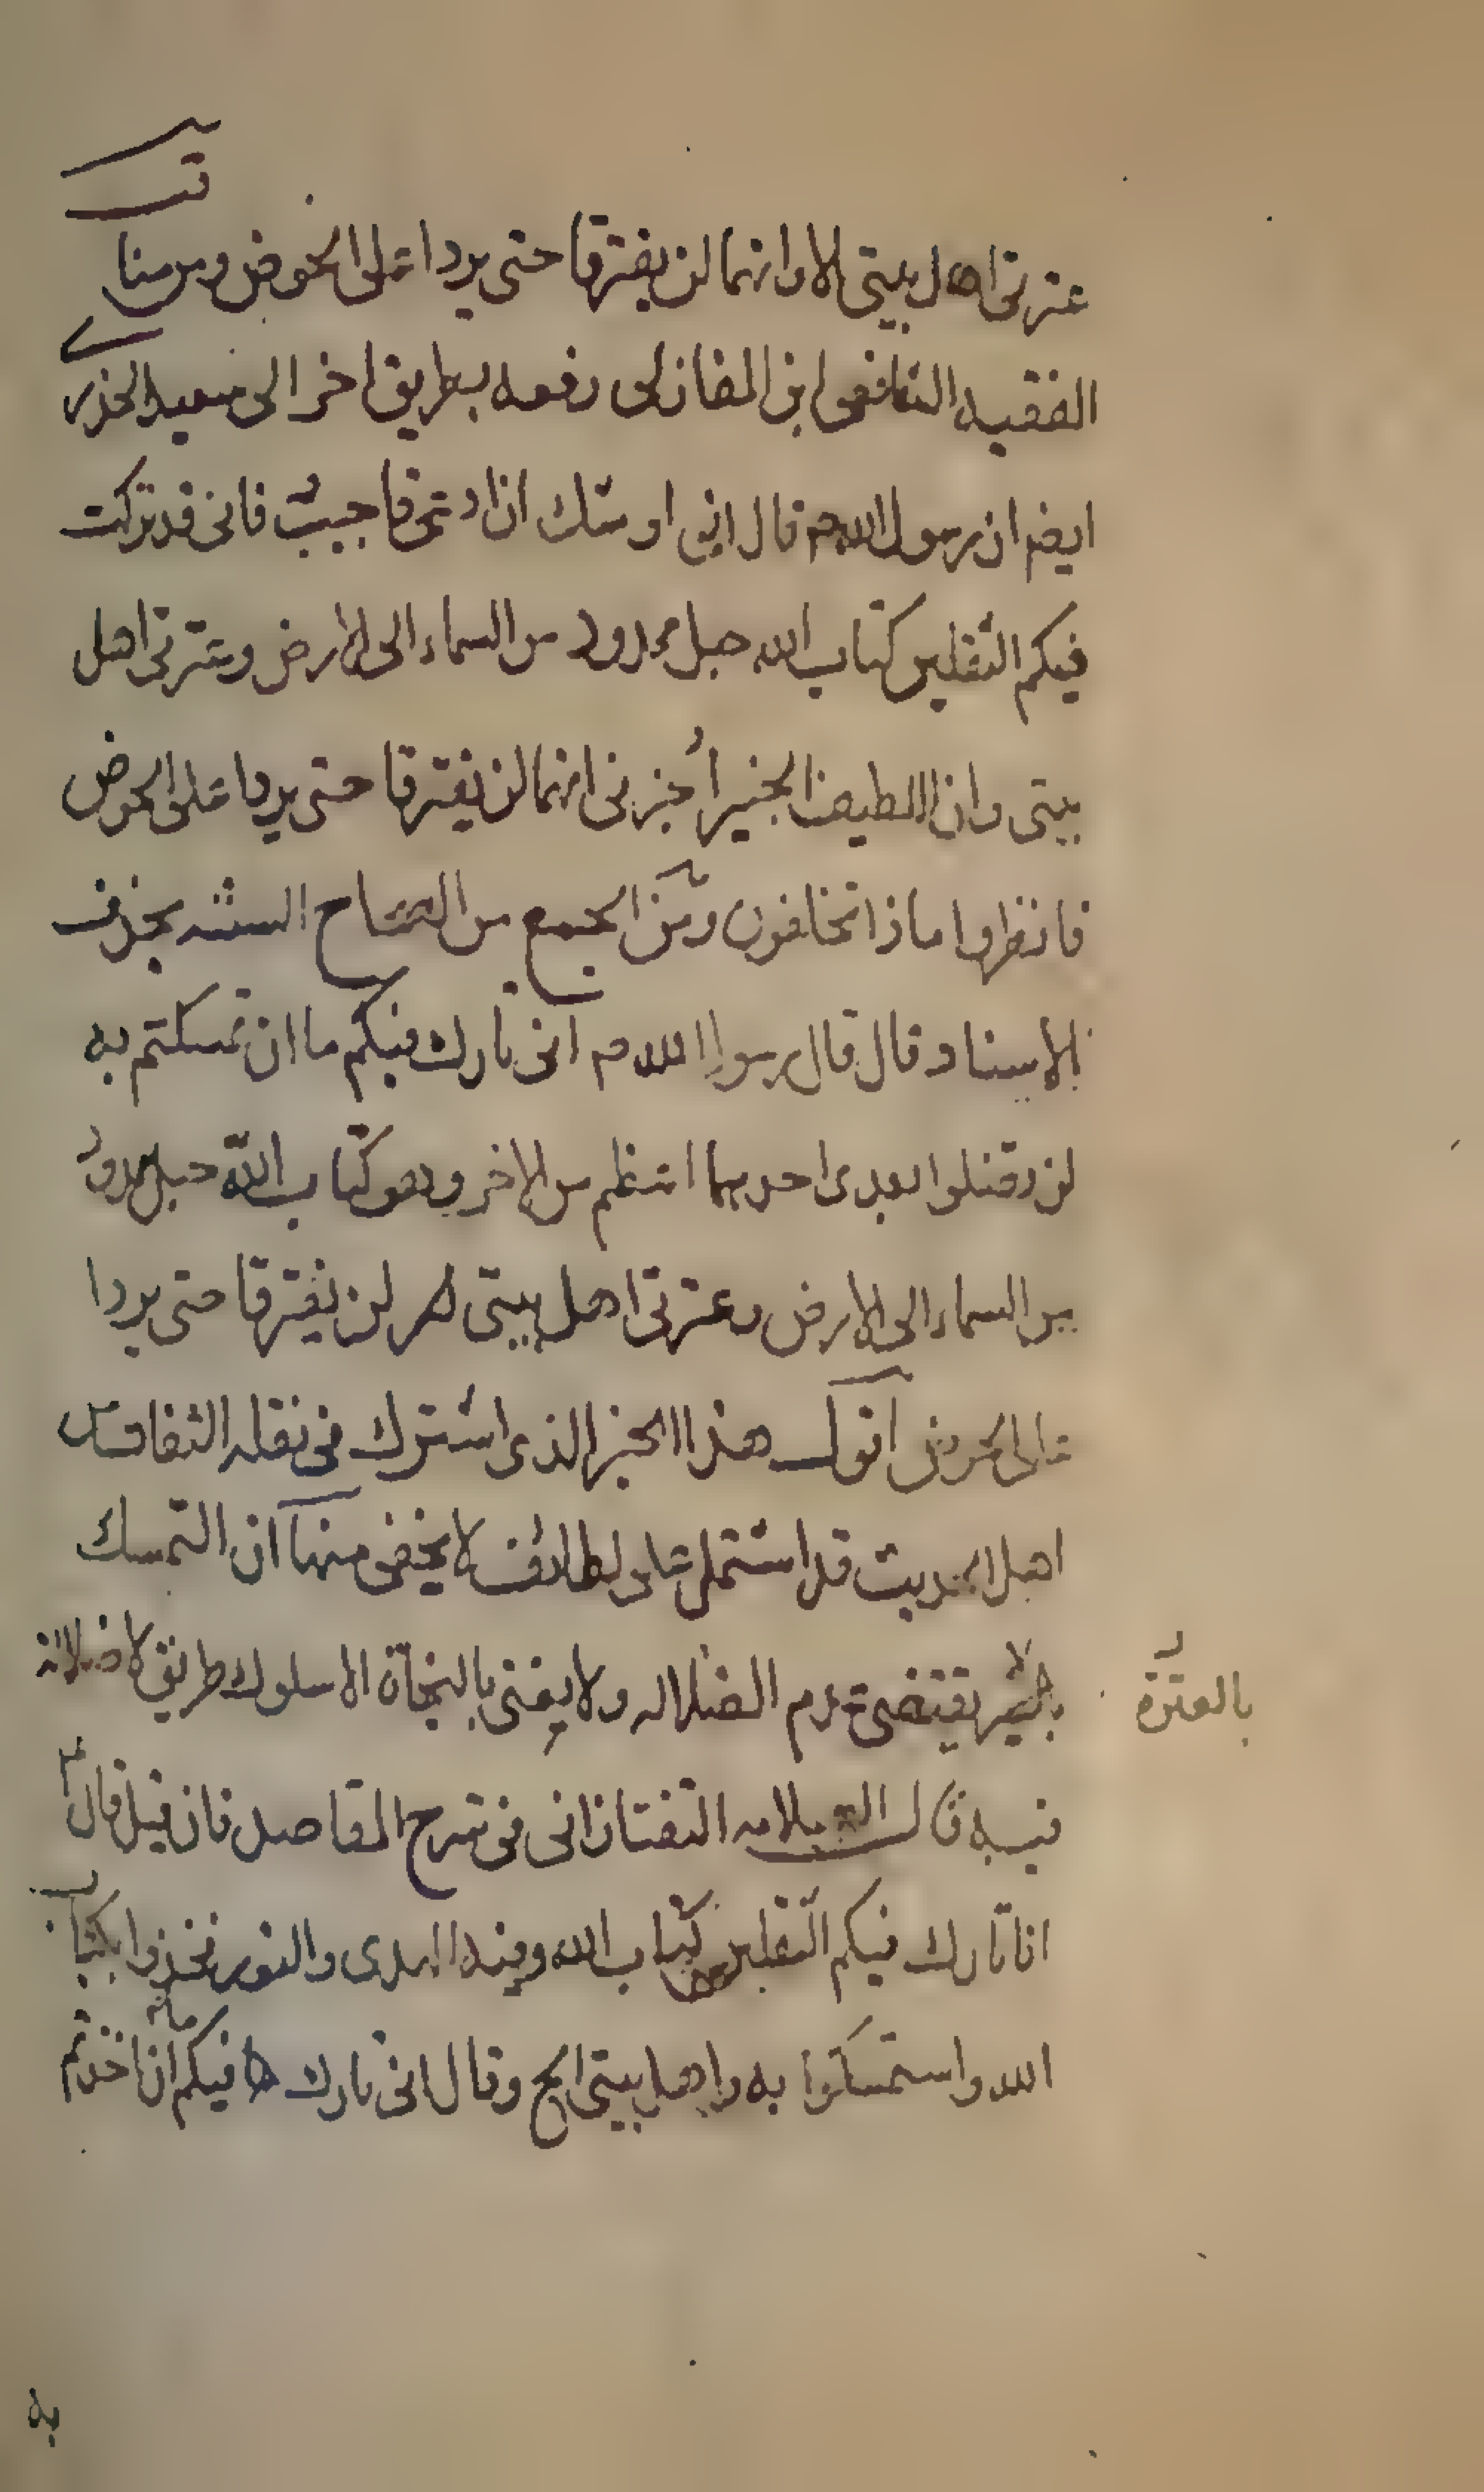 عترتى اهل بيتى الا وانهما لن يفترقا حتى يردا على الحوض ومن مناقب
الفقيه الشافعى ابن المغازلى رفعه بطريق اخر الى سعيد الخدرى
ايضم ان رسول الله ص قال انى اوشك ان ادعى فاجيب فانى قد تركت
فيكم الثقلين كتاب الله حبل ممدود من السماء الى الارض وعترتى اهل
بيتى وان اللطيف الخبير أخبرنى انهما لن يفترقا حتى يردا على الحوض
فانظروا ماذا تخلفون ومن الجمع من الصحاح الستة بحذف
الاسناد قال قال رسول الله ص انى تارك فيكم ما ان تمسكتم به
لن تضلوا بعدى احدهما اعظم من الاخر وهو كتاب الله حبل ممدود
من السماء الى الارض وعترتى اهل بيتى لن يفترقا حتى يردا
على الحوض اقول هذا الخبر الذى اشترك فى نقله الثقات من
اهل الحديث قد اشتمل على لطائف لا يخفى منها ان التمسك
بالعترة
يقتضى عدم الضلاله ولا يعنى بالنجاة الا سلوك طريق لا ضلالة
فيه قال العلامه التفتازانى فى شرح المقاصد فان قيل قال
انا تارك فيكم الثقلين كتاب الله وفيه الهدى والنور فخذوا بكتاب
الله واستمسكوا به واهل بيتى الخ وقال انى تارك فيكم ما ان اخذتم
به